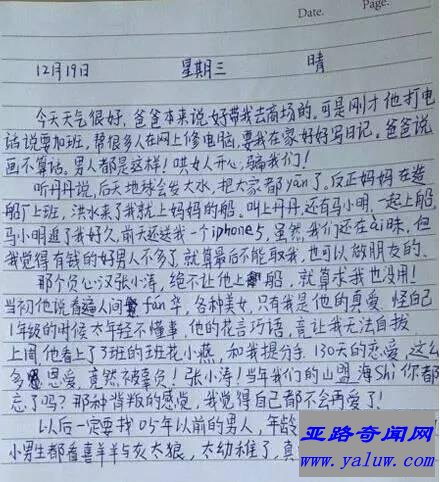 Date.
Page.
12月19日 星期三 晴
今天天气很好,爸爸本来说好带我去商场的。可是刚才他打电
话说要加班,帮很多人在网上修电脑,要我在家好好写日记。爸爸说
画不算话。男人都是这样!哄女人开心,骗我们!
听丹丹说,后天地球会发大水,把大家都yān了。反正妈妈在造
船厂上班,洪水来了我就上妈妈的船。叫上丹丹,还有马小明,一起上船。
马小明追了我好久,前天还送我一个iphone5,虽然我们还在ài昧,但
我觉得有钱的好男人不多了,就算最后不能取我,也可以做朋友的。
那个负心汉张小涛,绝不让他上船,就算求我也没用!
当初他说看遍人间fán华,各种美女,只有我是他的真爱。怪自己
1年级的时候太年轻不懂事,他的花言巧语,竟让我无法自拔
上周他看上了3班的班花小燕,和我提分手,130天的恋爱,这么
多恩爱,竟然被辜负!张小涛!当年我们的山盟海Shì你都
忘了吗?那种背叛的感觉,我觉得自己都不会再爱了!
以后一定要找05年以前的男人,年龄
小男生都看喜羊羊与灰太狼,太幼稚了,真
亚路奇闻网
www.yaluw.com